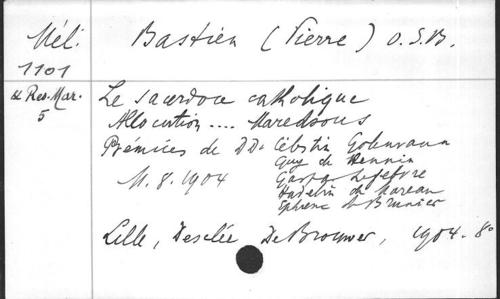 Mél.
1101
& Res. Mar.
5
Bastien (Pierre) O.S.B.
Le sacerdoce catholique
Allocution .... Maredsous
Prémices de DD. Célestin Golenvaux
Guy de Hennin
Gaspar Lefebvre
Hadelin de Moreau
Ephrem de Brunier
11.8.1904
Lille, Desclée De Brouwer, 1904. 8°